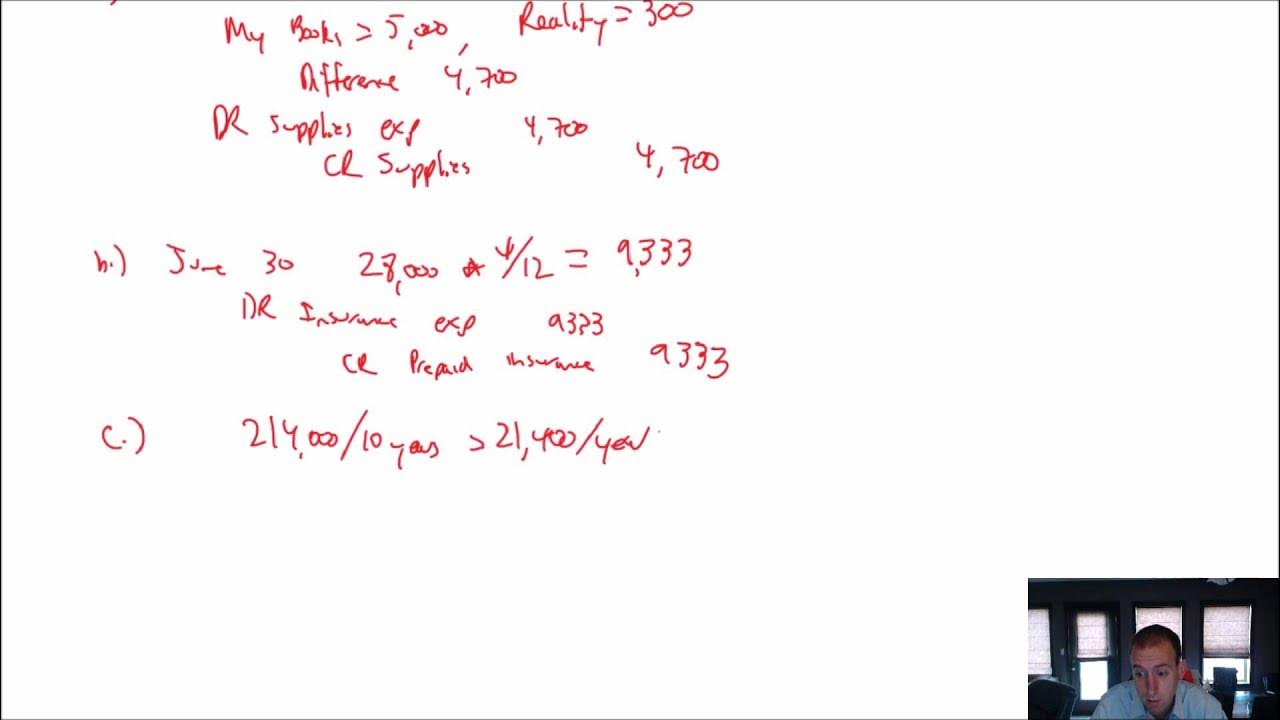 My Books = 5,000, Reality = 300
Difference 4,700
DR Supplies exp 4,700
CR Supplies 4,700
b.) June 30 28,000 * 4/12 = 9,333
DR Insurance exp 9333
CR Prepaid insurance 9333
c.) 214,000/10 years = 21,400/year